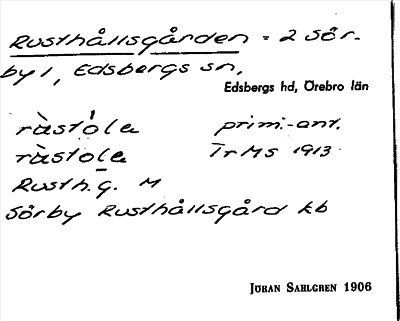 Rusthållsgården = 2 Sör-
by 1, Edsbergs sn,
Edsbergs hd, Örebro län
ràstóla prim.-ant.
ràstola Tr MS 1913
Rusth.g. M
Sörby Rusthållsgård kb
JÖRAN SAHLGREN 1906